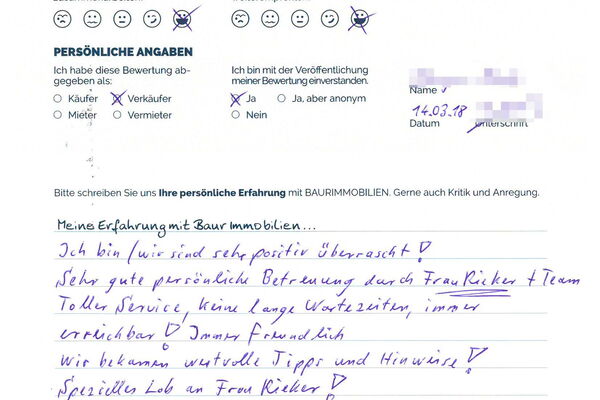 PERSÖNLICHE ANGABEN
Ich habe diese Bewertung ab-
gegeben als:
Käufer Verkäufer
Mieter Vermieter
Ich bin mit der Veröffentlichung
meiner Bewertung einverstanden.
Ja Ja, aber anonym
Nein
Name
14.03.18
Datum Unterschrift
Bitte schreiben Sie uns Ihre persönliche Erfahrung mit BAURIMMOBILIEN. Gerne auch Kritik und Anregung.
Meine Erfahrung mit Baur Immobilien...
Ich bin / wir sind sehr positiv überrascht!
Sehr gute persönliche Betreuung durch Frau Rieker + Team
Toller Service, keine lange Wartezeiten, immer
erreichbar! Immer freundlich
Wir bekamen wertvolle Tipps und Hinweise!
Spezielles Lob an Frau Rieker!